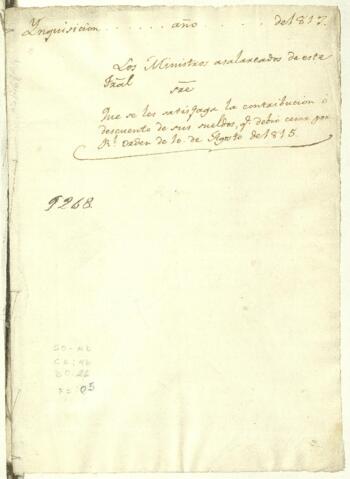 Ynquisicion . . . . . . año . . . . . . de 1817.
Los Ministros asalareados de este
Tral
sre
Que se les satisfaga la contribucion ó
descuento de sus sueldos, q. debio cesar por
Rl. orden de 10. de Agosto de 1815.
9268.
CC: 46
F: 05